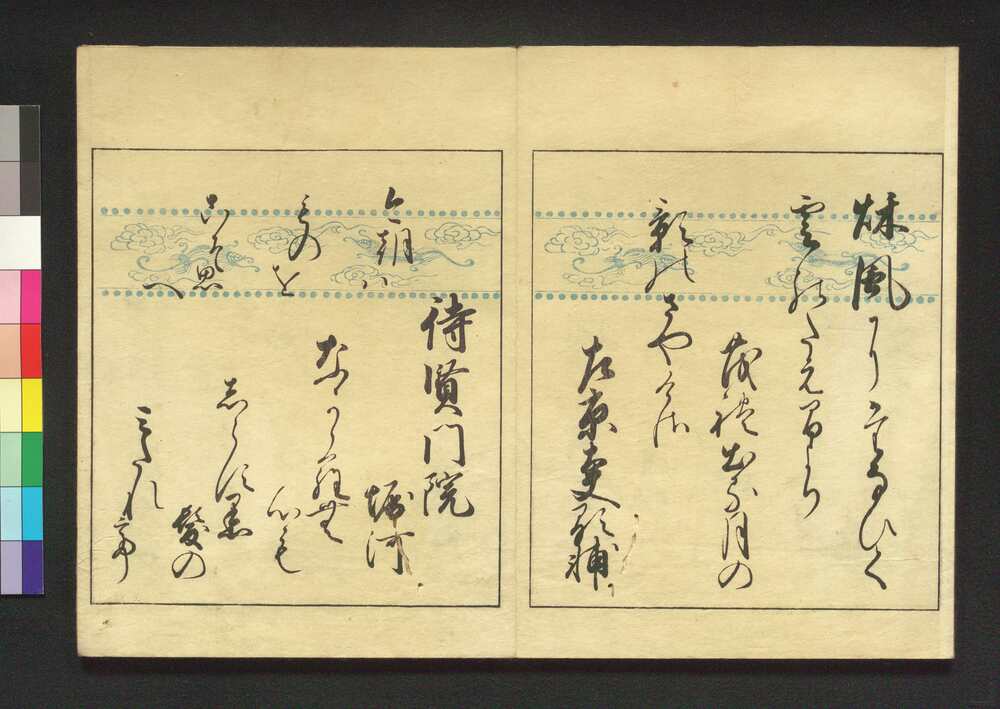 秌風にたなひく
雲のたえ間より
茂禮出る月の
影のさやけさ
左京大夫顕輔
待賢門院
堀河
なからむ
心も
しらす黒
髪の
みたれて
今朝ハ
ものを
こそ思へ